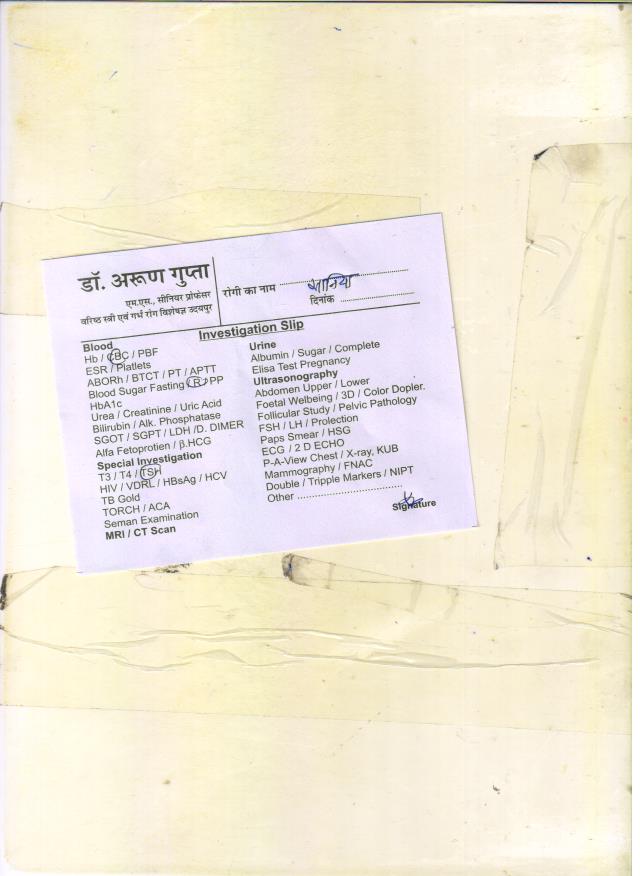 डॉ. अरूण गुप्ता
एम.एस., सीनियर प्रोफेसर
वरिष्ठ स्त्री एवं गर्भ रोग विशेषज्ञ उदयपुर
रोगी का नाम
दिनांक
Investigation Slip
Blood
Hb / CBC / PBF
ESR / Platlets
ABORh / BTCT / PT / APTT
Blood Sugar Fasting / R / PP
HbA1c
Urea / Creatinine / Uric Acid
Bilirubin / Alk. Phosphatase
SGOT / SGPT / LDH /D. DIMER
Alfa Fetoprotien / β.HCG
Special Investigation
T3 / T4 / TSH
HIV / VDRL / HBsAg / HCV
TB Gold
TORCH / ACA
Seman Examination
MRI / CT Scan
Urine
Albumin / Sugar / Complete
Elisa Test Pregnancy
Ultrasonography
Abdomen Upper / Lower
Foetal Welbeing / 3D / Color Dopler.
Follicular Study / Pelvic Pathology
FSH / LH / Prolection
Paps Smear / HSG
ECG / 2 D ECHO
P-A-View Chest / X-ray, KUB
Mammography / FNAC
Double / Tripple Markers / NIPT
Other ................................
Signature